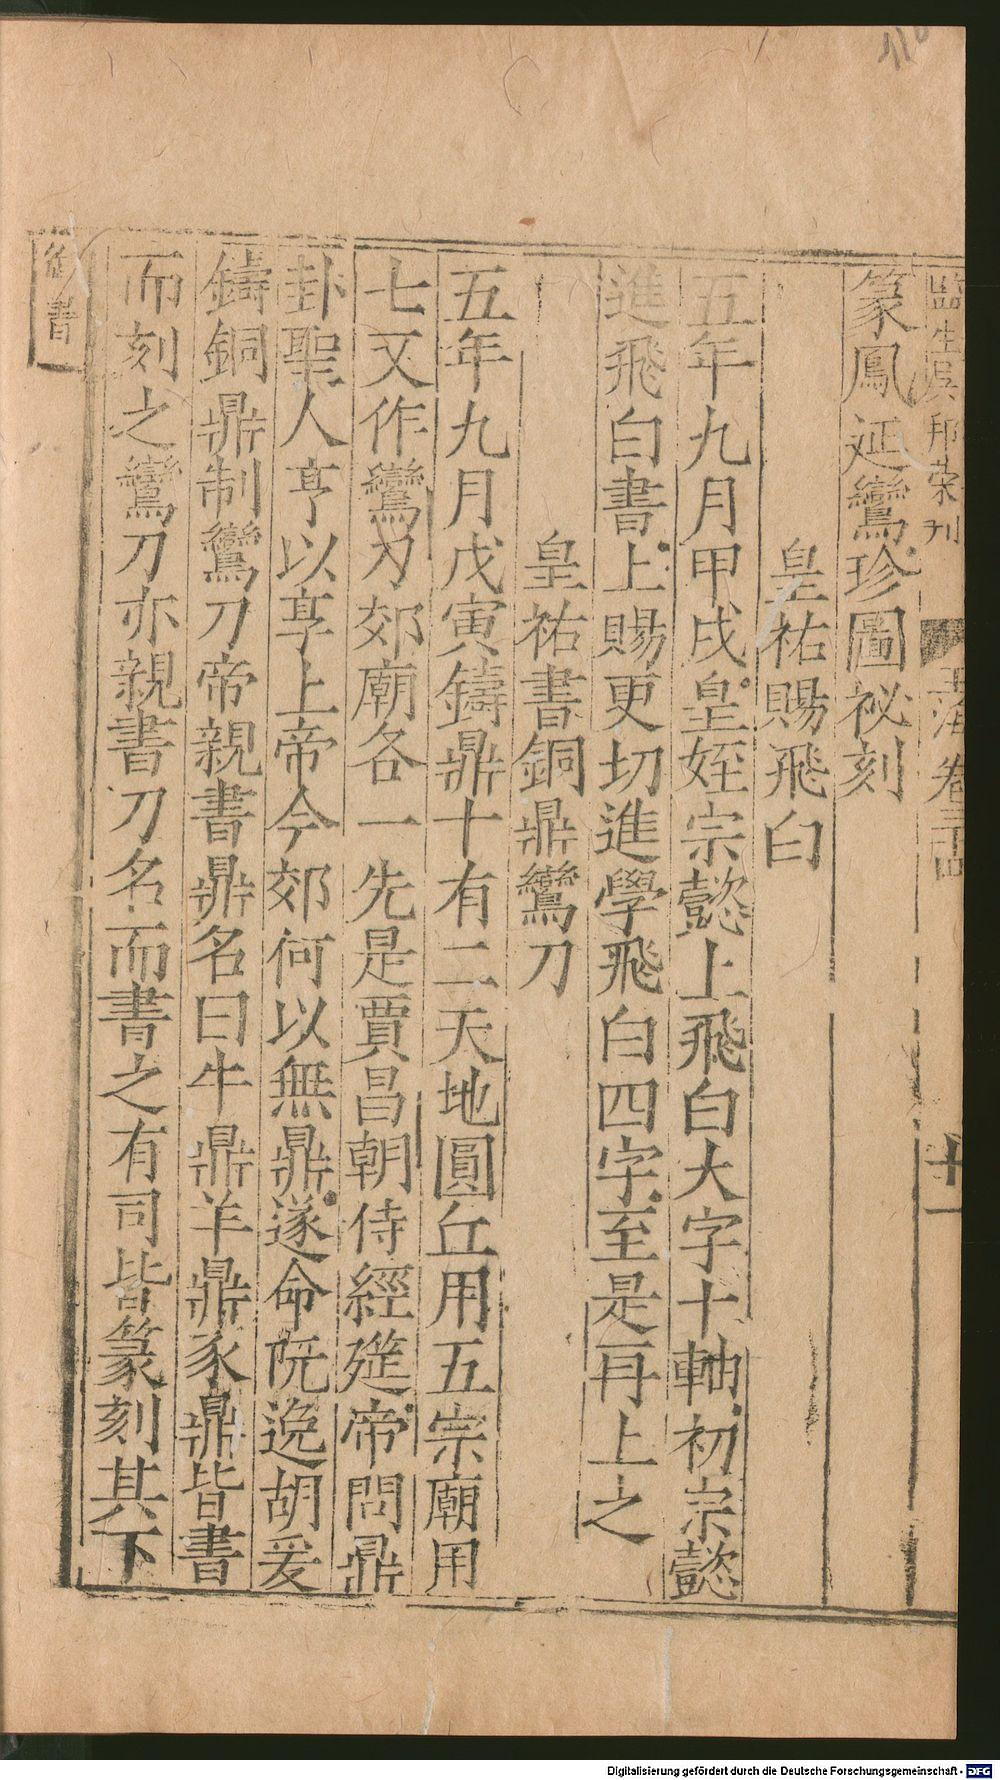 監生吳邦榮刊 玉海卷三十四 十一
篆鳳延鸞珍圖祕刻
皇祐賜飛白
五年九月甲戌皇姪宗懿上飛白大字十軸初宗懿
進飛白書上賜更切進學飛白四字至是再上之
皇祐書銅鼎鸞刀
五年九月戊寅鑄鼎十有二天地圓丘用五宗廟用
七又作鸞刀郊廟各一先是賈昌朝侍經筵帝問鼎
卦聖人亨以享上帝今郊何以無鼎遂命阮逸胡爰
鑄銅鼎制鸞刀帝親書鼎名曰牛鼎羊鼎豕鼎皆書
而刻之鸞刀亦親書刀名而書之有司皆篆刻其下
御書
Digitalisierung gefördert durch die Deutsche Forschungsgemeinschaft - DFG